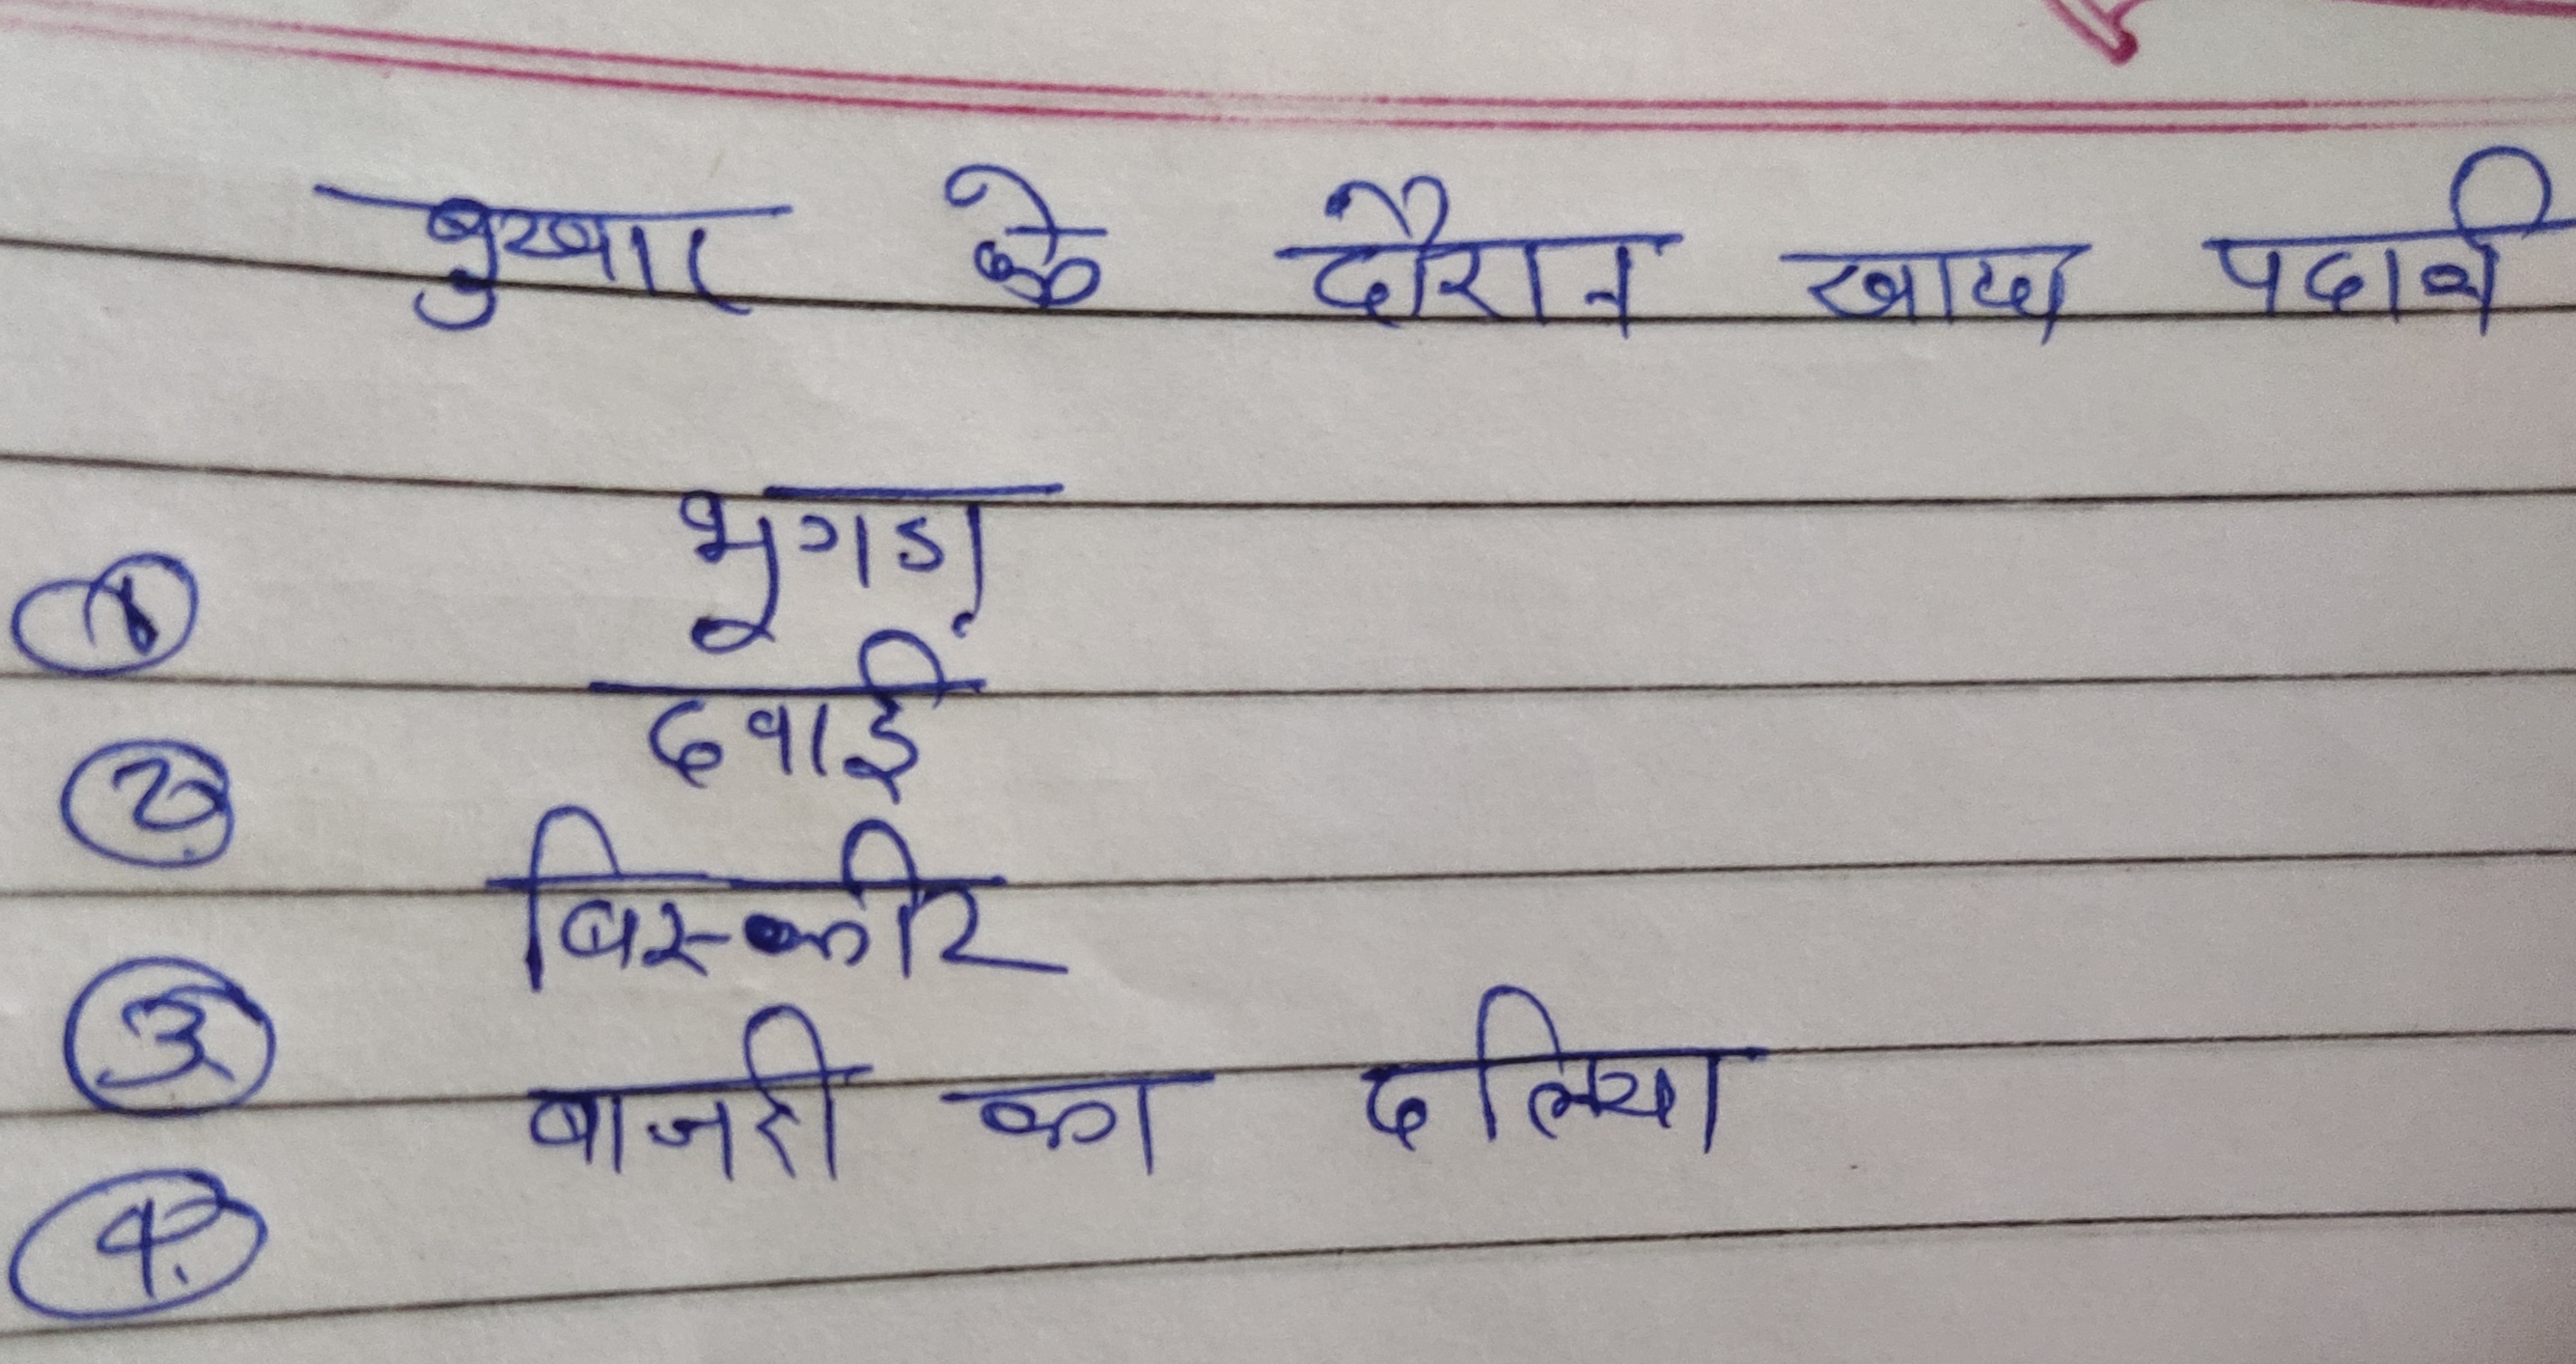 बुखार के दौरान खाद्य पदार्थ
① भूगड़ा
② दवाई
③ बिस्कीट
④ बाजरी का दलिया